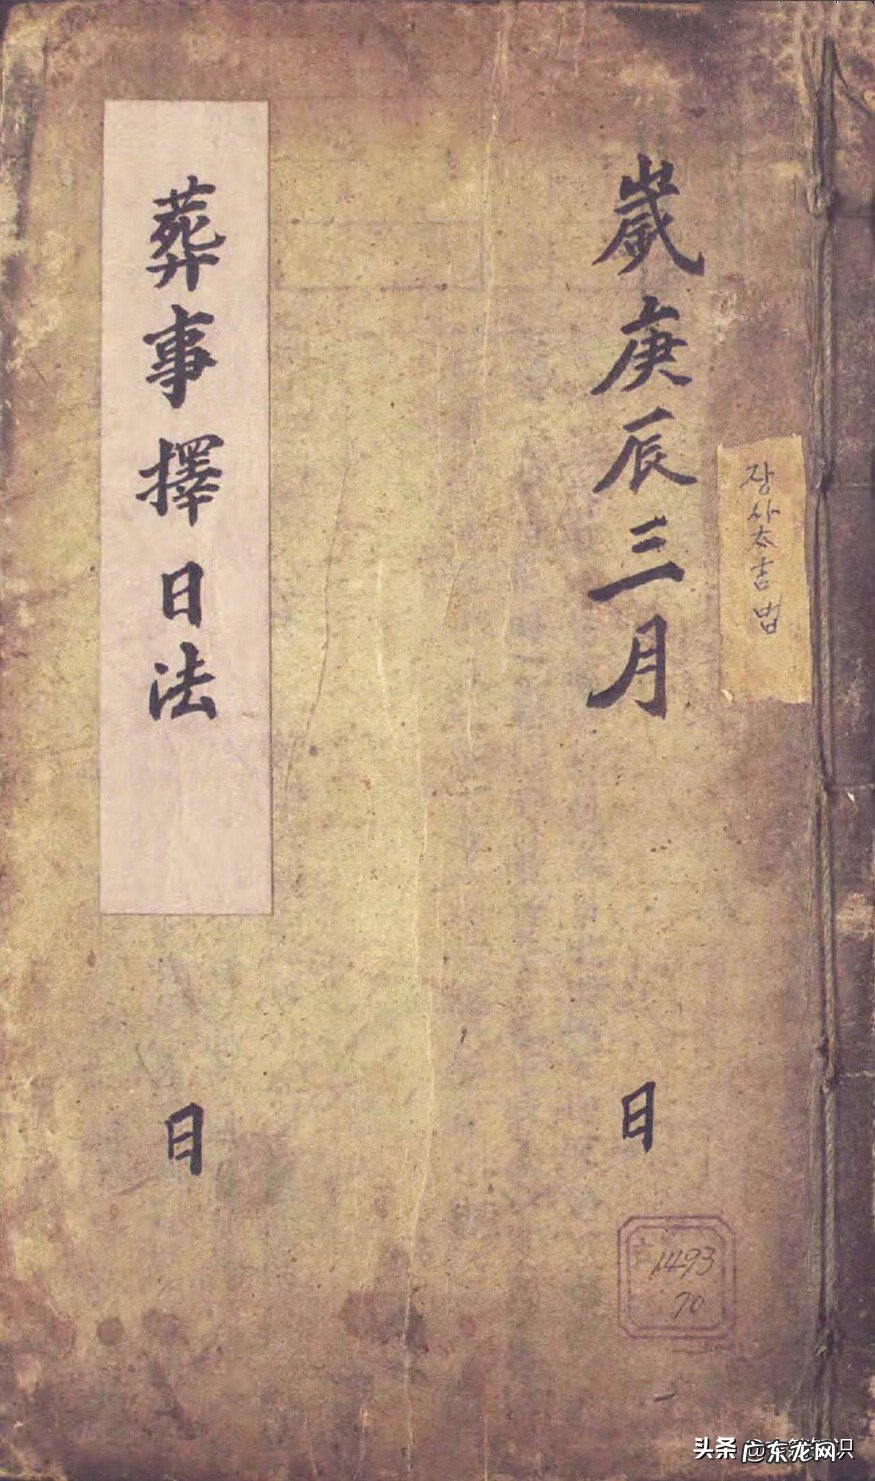 장사太吉법
歲庚辰三月
日
葬事擇日法
日
1493
70
头条
广东龙网